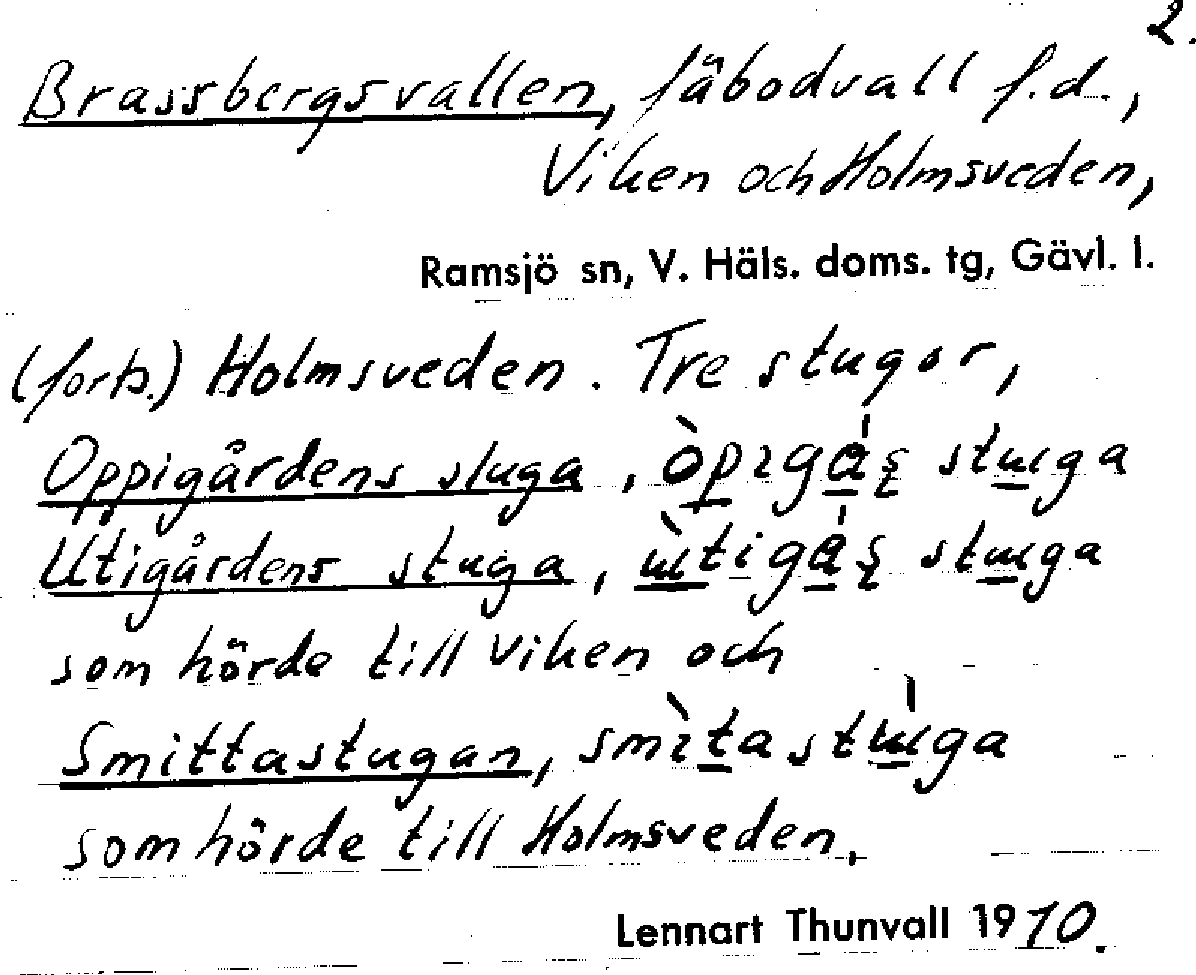 2.
Brassbergsvallen, fäbodvall f.d.,
Viken och Holmsveden,
Ramsjö sn, V. Häls. doms. tg, Gävl. l.
(forts.) Holmsveden. Tre stugor,
Oppigårdens stuga,
Utigårdens stuga,
som hörde till Viken och
Smittastugan,
som hörde till Holmsveden.
Lennart Thunvall 1970.